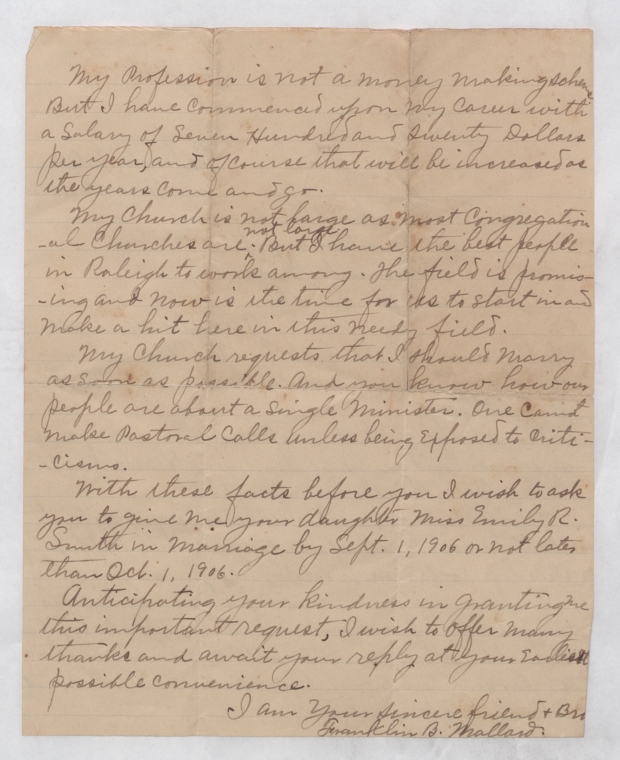 My Profession is not a money making scheme
But I have commenced upon my career with
a Salary of Seven Hundred and Twenty Dollars
per year, and of course that will be increased as
the years come and go.
My Church is not large as most Congregation-
not large
-al Churches are. But I have the best people
in Raleigh to work among. The field is promis-
-ing and now is the time for us to start in and
make a hit here in this needy field.
My Church requests that I should marry
as soon as possible. And you know how our
people are about a Single Minister. One can't
make Pastoral Calls unless being Exposed to Criti-
-cisms.
With these facts before you I wish to ask
you to give me your daughter Miss Emily R.
Smith in Marriage by Sept. 1, 1906 or not later
than Oct. 1, 1906.
Anticipating your kindness in granting me
this important request, I wish to offer many
thanks and await your reply at your Earliest
possible convenience.
I am Your sincere friend + Bro
Franklin B. Mallard.